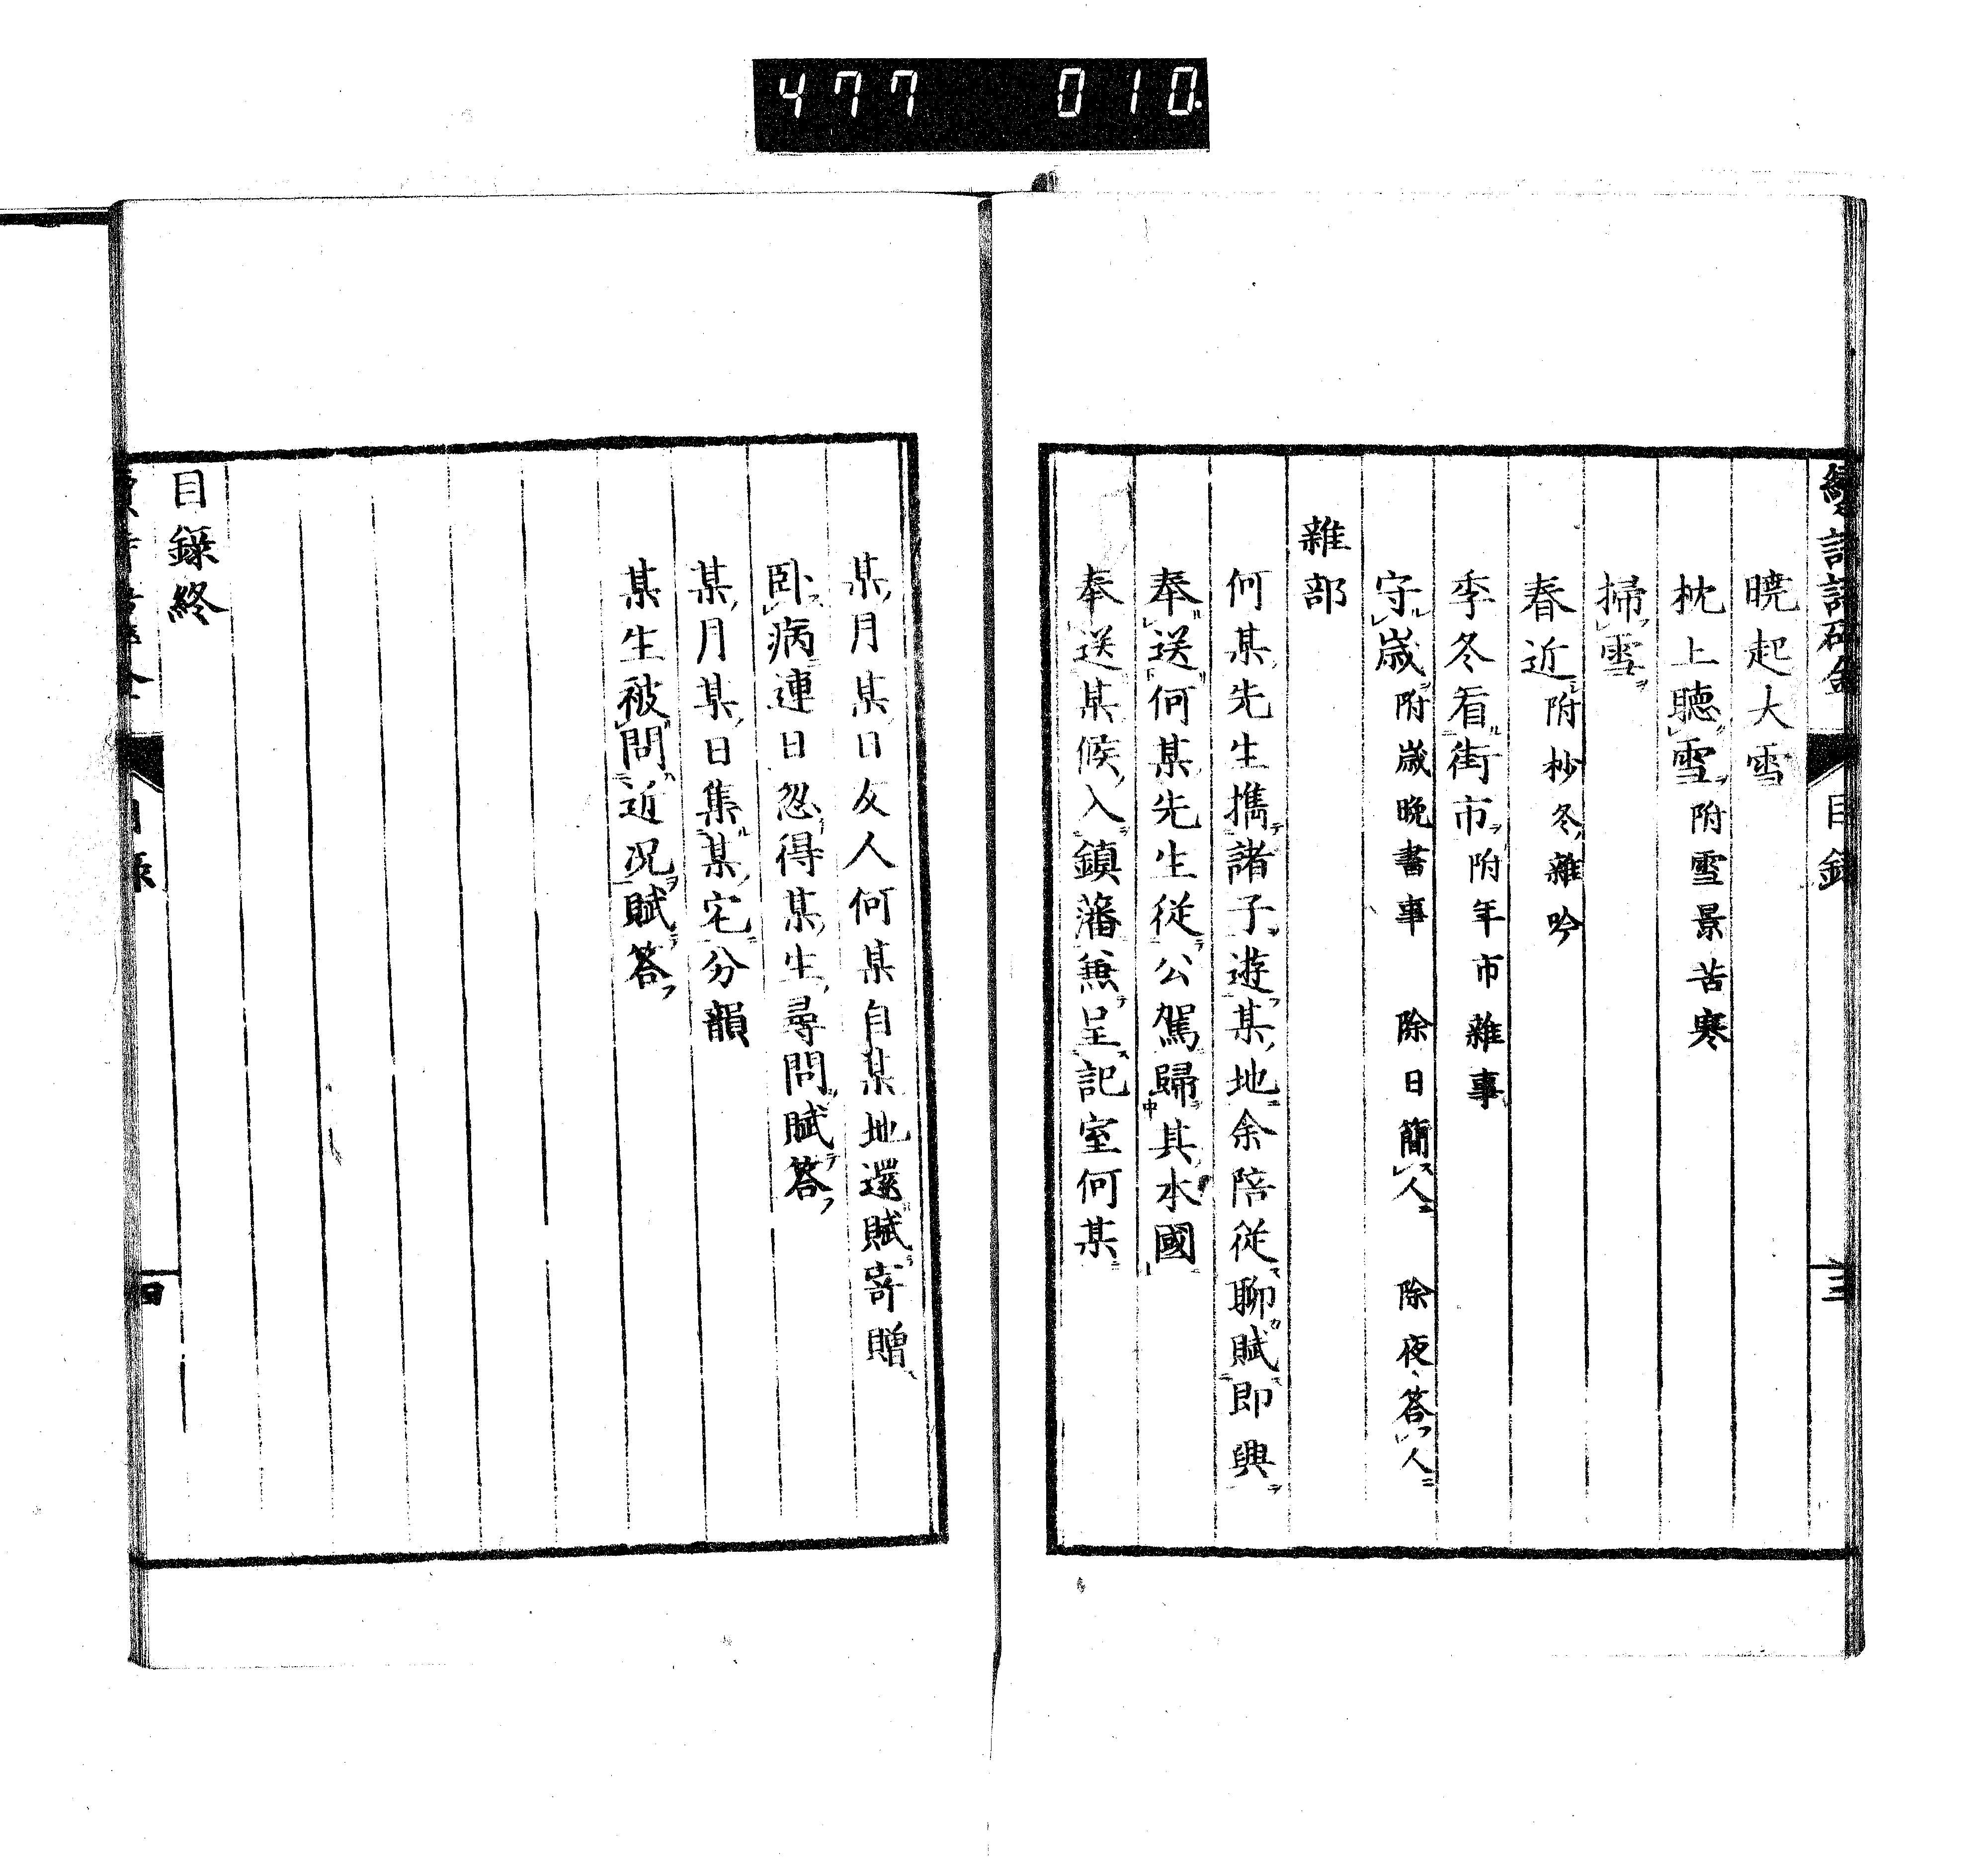 477 010
曉起大雪
枕上聽雪 附雪景苦寒
掃雪
春近 附杪冬雜吟
季冬看街市 附年市雜事
守歳 附歳晩書事 除日簡人 除夜答人
雜部
何某先生攜諸子遊某地余陪從聊賦即興
奉送何某先生從公駕歸其本國
奉送某候入鎮藩兼呈記室何某
目錄
三
某月某日友人何某自某地還賦寄贈
臥病連日忽得某生尋問賦答
某月某日集某宅分韻
某生被問近況賦答
目錄終